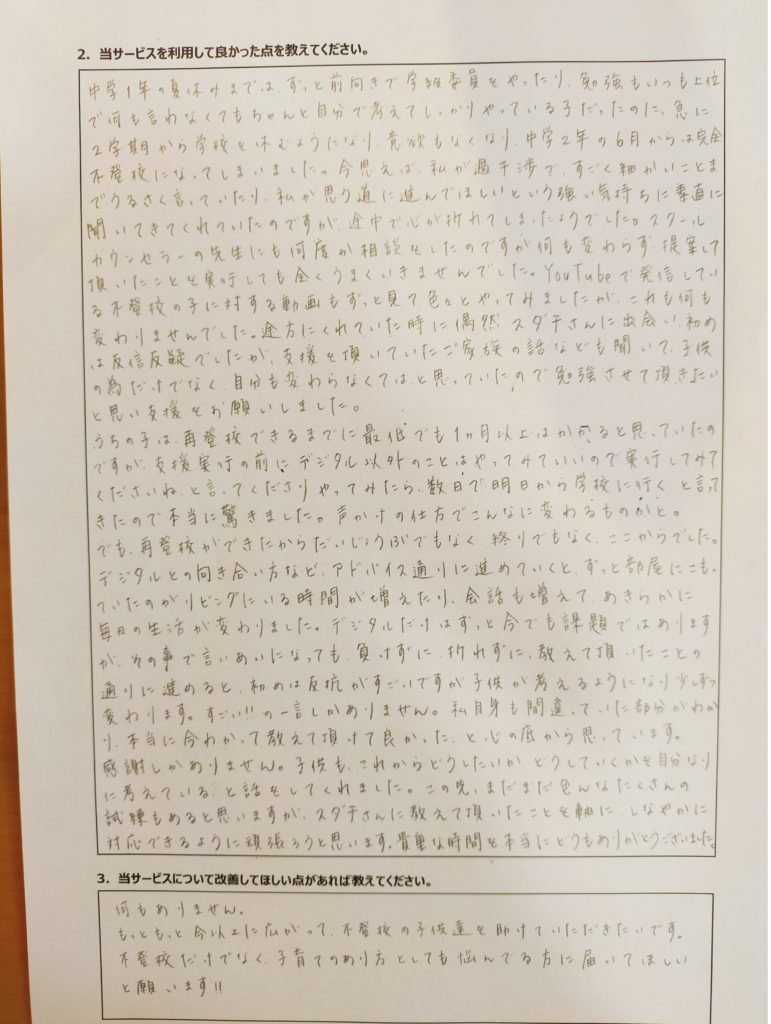 2. 当サービスを利用して良かった点を教えてください。
中学1年の夏休みまでは、ずっと前向きで学級委員をやったり、勉強もいつも上位
で何も言わなくてもちゃんと自分で考えてしっかりやっている子だったのに、急に
2学期から学校を休むようになり、意欲もなくなり、中学2年の6月からは完全
不登校になってしまいました。今思えば、私が過干渉で、すごく細かいことま
でうるさく言っていたり、私が思う道に進んでほしいという強い気持ちに素直に
聞いてきてくれていたのですが、途中で心が折れてしまったようでした。スクール
カウンセラーの先生にも何度か相談をしたのですが何も変わらず、提案して
頂いたことを実行しても全くうまくいきませんでした。YouTubeで発信してい
る不登校の子に対する動画もずっと見て色々とやってみましたが、これも何も
変わりませんでした。途方にくれていた時に偶然、スダチさんに出会い、初め
は反信反疑でしたが、支援を頂いていたご家族の話なども聞いて、子供
の為だけでなく、自分も変わらなくては、と思っていたので勉強させて頂きたい
と思い支援をお願いしました。
うちの子は、再登校できるまでに最低でも1ヶ月以上はかかると思っていたの
ですが、支援実行の前にデジタル以外のことはやってみていいので実行してみて
くださいね、と言ってくださりやってみたら、数日で明日から学校に行く、と言って
きたので本当に驚きました。声かけの仕方でこんなに変わるものかと。
でも、再登校ができたからだいじょうぶでもなく、終りでもなく、ここからでした。
デジタルとの向き合い方など、アドバイス通りに進めていくと、ずっと部屋にこもっ
ていたのがリビングにいる時間が増えたり、会話も増えて、あきらかに
毎日の生活が変わりました。デジタルだけはずっと今でも課題ではあります
が、その事で言いあいになっても、負けずに、折れずに、教えて頂いたことの
通りに進めると、初めは反抗がすごいですが子供が考えるようになり少しずつ
変わります。すごい!!の一言しかありません。私自身も間違っていた部分がわか
り、本当に今わかって教えて頂けて良かった、と心の底から思っています。
感謝しかありません。子供も、これからどうしたいか、どうしていくかを自分なり
に考えている、と話をしてくれました。この先、まだまだ色んなたくさんの
試練もあると思いますが、スダチさんに教えて頂いたことを軸に、しなやかに
対応できるように頑張ろうと思います。貴重な時間を本当にどうもありがとうございました。
3. 当サービスについて改善してほしい点があれば教えてください。
何もありません。
もっともっと、今以上に広がって、不登校の子供達を助けていただきたいです。
不登校だけでなく、子育てのあり方としても悩んでる方に届いてほしい
と願います!!